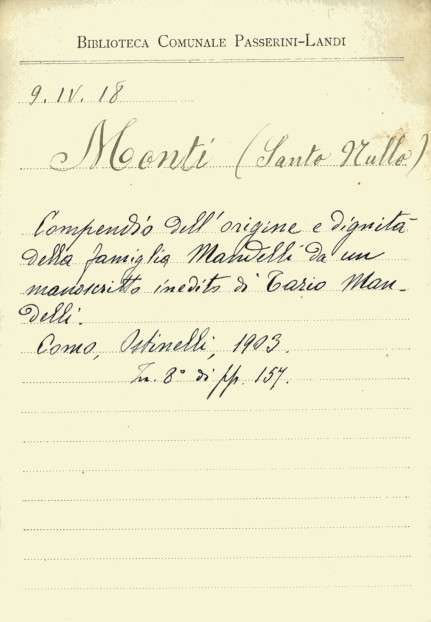 BIBLIOTECA COMUNALE PASSERINI-LANDI
9. IV. 18
Monti (Santo Nullo)
Compendio dell'origine e dignità
della famiglia Mandelli da un
manoscritto inedito di Tazio Man-
delli.
Como, Ostinelli, 1903.
In. 8° di pp. 157.